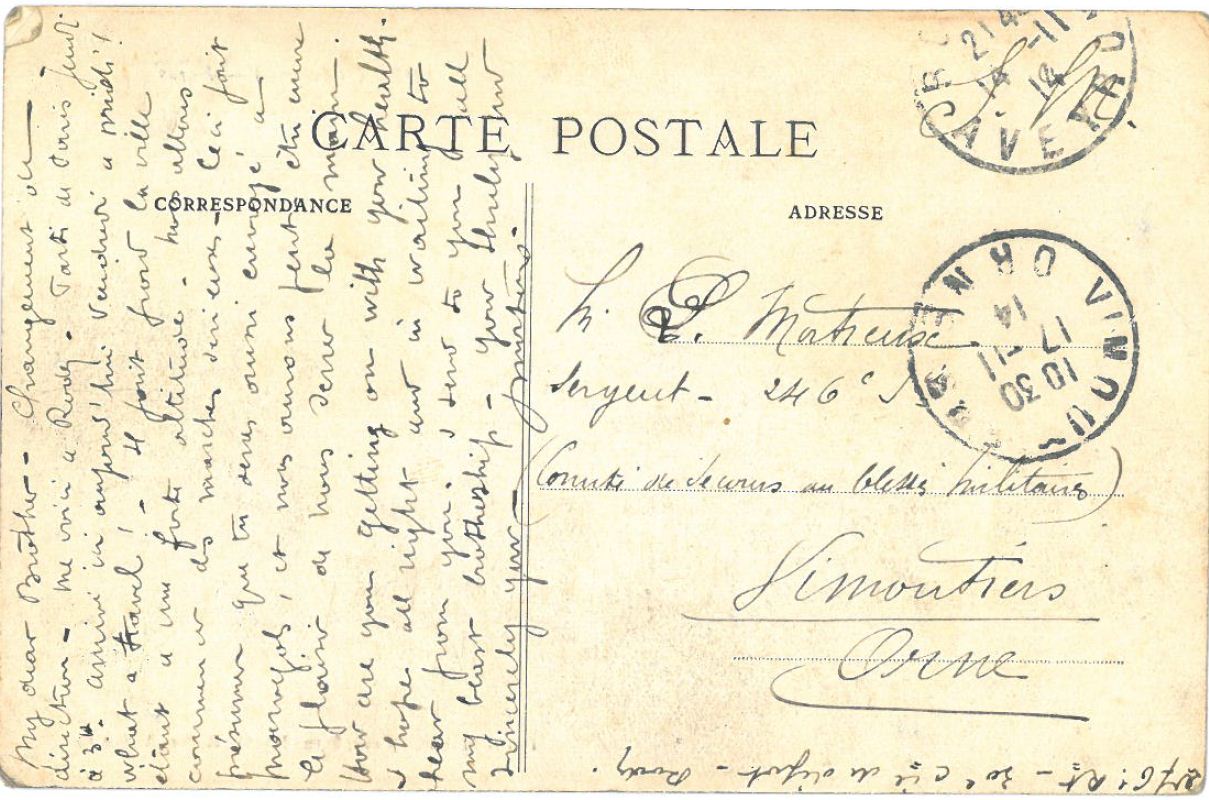 CARTE POSTALE
CORRESPONDANCE
ADRESSE
My dear Brother - Changement de
direction - Me voici à Rodez. Parti de Paris jeudi
à 3h arrivé ici aujourd'hui Vendredi à midi!
what a travel! - Il fait froid la ville
étant à une forte altitude - nous allons
commencer des marches sérieuses - Ceci fait
présumer que tu seras aussi envoyé à
, et nous aurons peut être encore
le plaisir de nous serrer la main.
How are you getting on with your health.
I hope all right and in waiting to
hear from you. I send to you all
my best brothership - your truly and
sincerely your
M. Mortreuse
Sergent - 246e
(Comité de Secours au blessés militaires)
Vimoutiers
Orne
30e Cie de dépôt - Rodez.
AVEYRON
14 -11
14
VIMOUTIERS
ORNE
10 30
17 -11
14